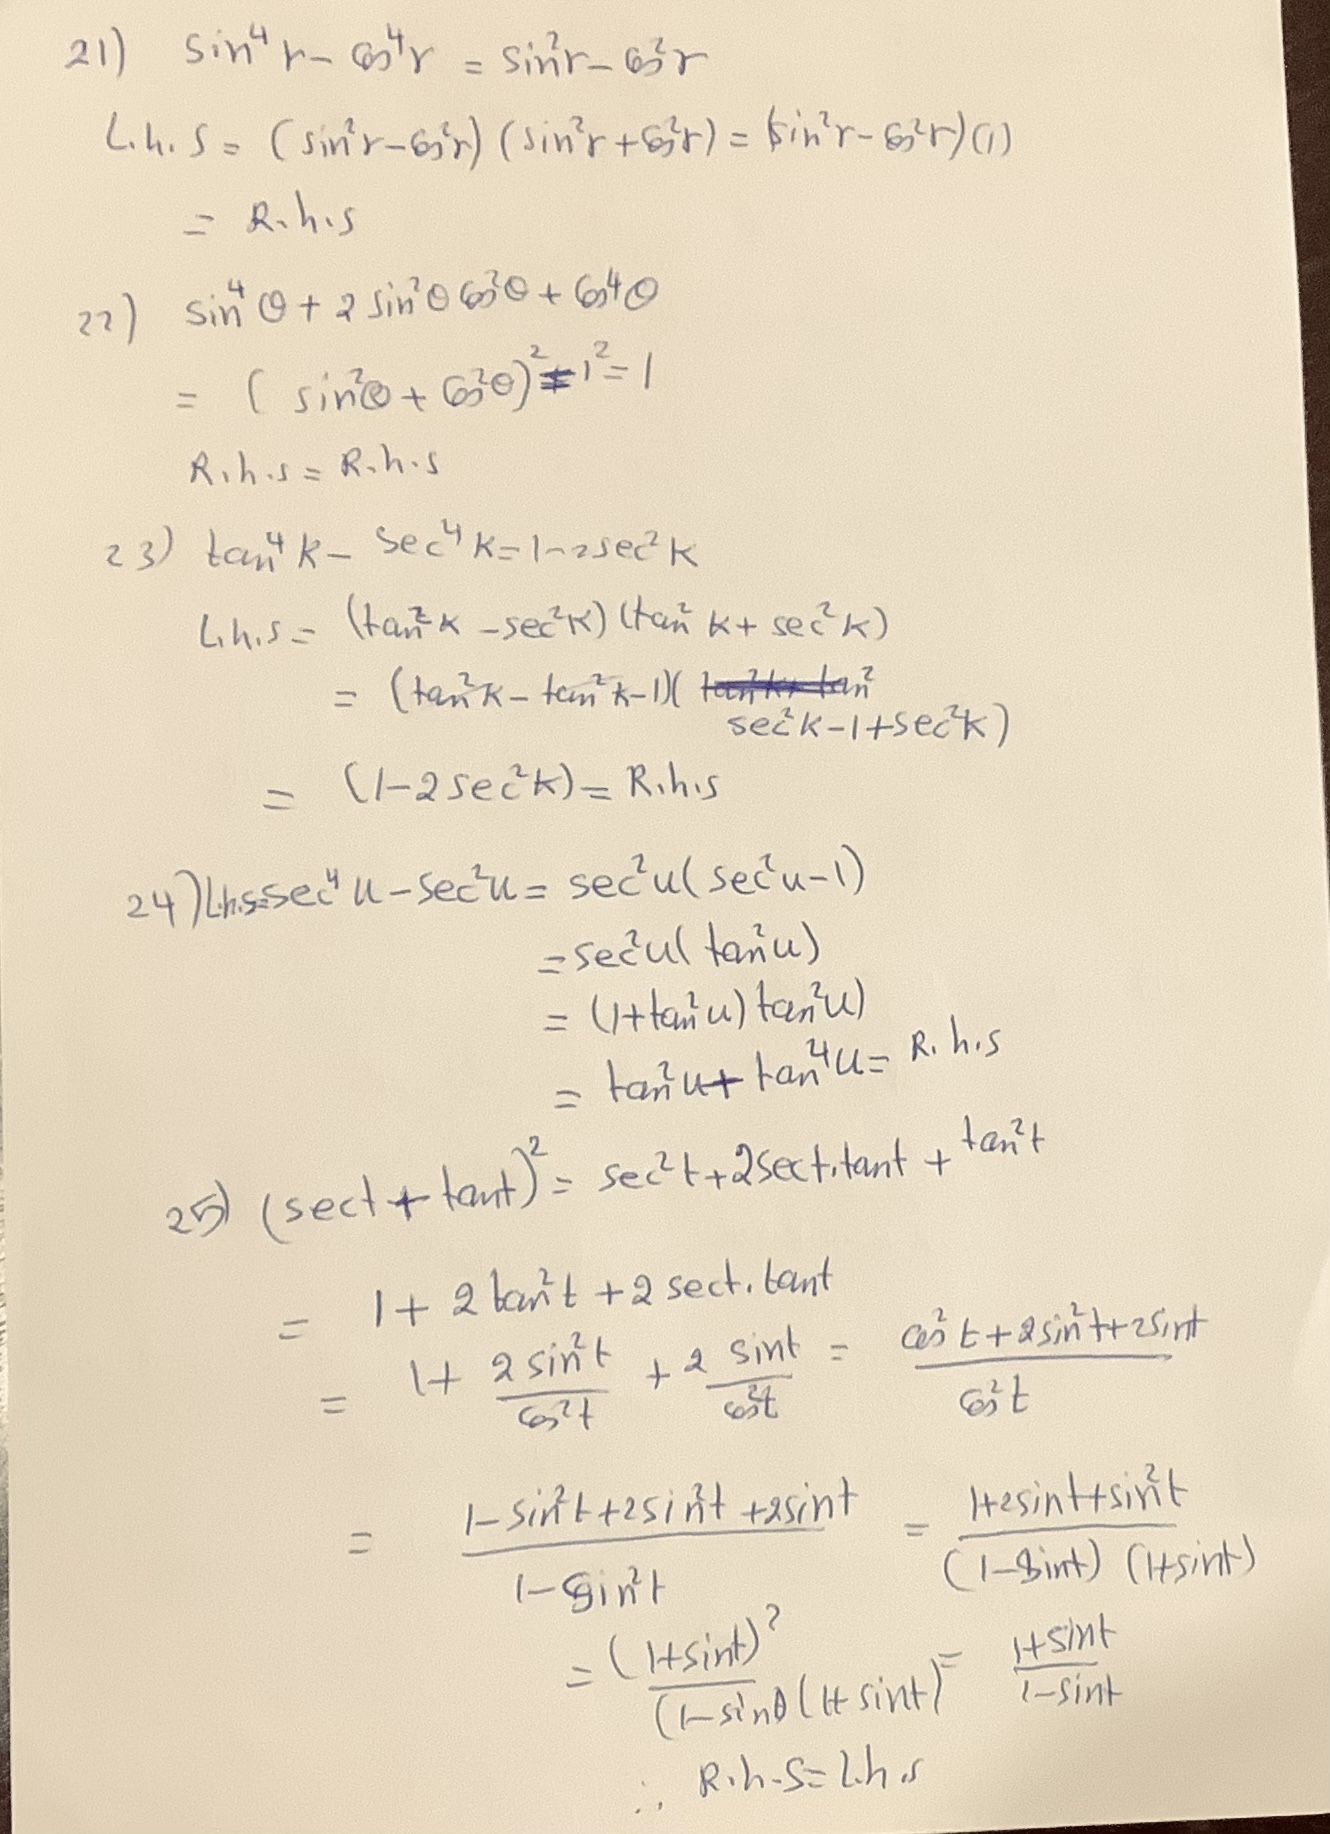 21) sin⁴r - cos⁴r = sin²r - cos²r
L.h.S = (sin²r - cos²r) (sin²r + cos²r) = (sin²r - cos²r)(1)
= R.h.s
22) sin⁴θ + 2 sin²θ cos²θ + cos⁴θ
= (sin²θ + cos²θ)² = 1² = 1
R.h.s = R.h.s
23) tan⁴k - sec⁴k = 1 - 2sec²k
L.h.s = (tan²k - sec²k) (tan²k + sec²k)
= (tan²k - tan²k - 1)(
sec²k - 1 + sec²k)
= (1 - 2sec²k) = R.h.s
24) L.h.s = sec⁴u - sec²u = sec²u(sec²u - 1)
= sec²u(tan²u)
= (1 + tan²u) tan²u)
= tan²u + tan⁴u = R.h.s
25) (sect + tant)² = sec²t + 2sect.tant + tan²t
= 1 + 2tan²t + 2sect.tant
= 1 + 2sin²t/cos²t + 2 sint/cos²t = cos²t + 2sin²t + 2sint/cos²t
= 1 - sin²t + 2sin²t + 2sint/1 - sin²t = 1 + 2sint + sin²t/(1 - sint) (1 + sint)
= (1 + sint)²/(1 - sint)(1 + sint) = 1 + sint/1 - sint
∴ R.h.S = L.h.s